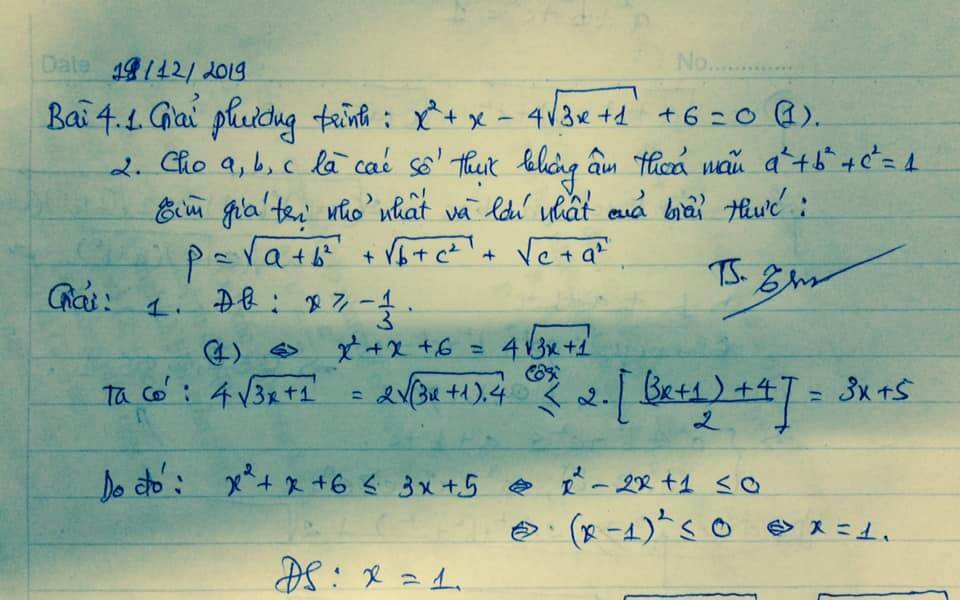 Date 19/12/2019 No..............
Bài 4.1. Giải phương trình: x² + x - 4√(3x+1) + 6 = 0 (1).
2. Cho a, b, c là các số thực không âm thoả mãn a² + b² + c² = 1
Tìm giá trị nhỏ nhất và lớn nhất của biểu thức:
P = √(a + b²) + √(b + c²) + √(c + a²)
TS.
Giải: 1. ĐK: x ≥ -1/3.
(1) ⇔ x² + x + 6 = 4√(3x+1)
Ta có: 4√(3x+1) = 2√((3x+1).4) ≤ (Côsi) 2.[((3x+1)+4)/2] = 3x+5
Do đó: x² + x + 6 ≤ 3x + 5 ⇔ x² - 2x + 1 ≤ 0
⇔ (x-1)² ≤ 0 ⇔ x = 1.
ĐS: x = 1.